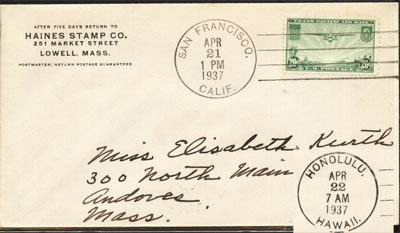 AFTER FIVE DAYS RETURN TO
HAINES STAMP CO.
251 MARKET STREET
LOWELL, MASS.
POSTMASTER: RETURN POSTAGE GUARANTEED
SAN FRANCISCO.
APR
21
1 PM
1937
CALIF.
TRANS-PACIFIC AIR MAIL
20¢
20¢
U.S. POSTAGE
Miss Elisabeth Kurth
300 North Main
Andover
Mass.
HONOLULU.
APR
22
7 AM
1937
HAWAII.